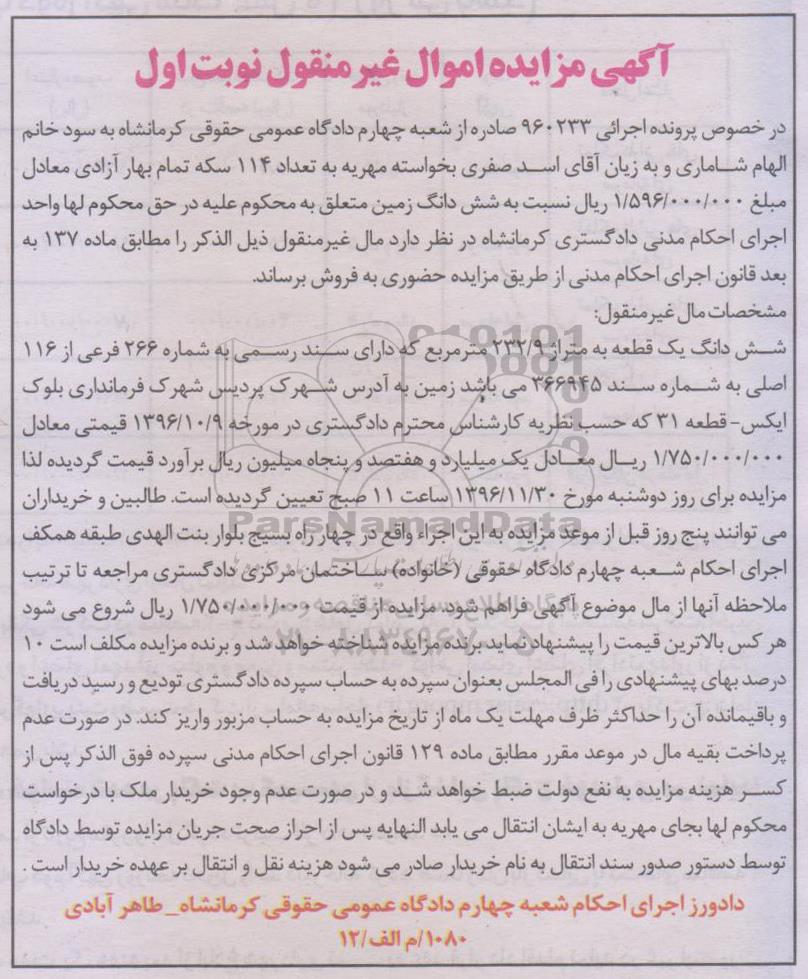 آگهی مزایده اموال غیر منقول نوبت اول
در خصوص پرونده اجرائی ۹۶۰۲۳۳ صادره از شعبه چهارم دادگاه عمومی حقوقی کرمانشاه به سود خانم
الهام شاماری و به زیان آقای اسد صفری بخواسته مهریه به تعداد ۱۱۴ سکه تمام بهار آزادی معادل
مبلغ ۱/۵۹۶/۰۰۰/۰۰۰ ریال نسبت به شش دانگ زمین متعلق به محکوم علیه در حق محکوم لها واحد
اجرای احکام مدنی دادگستری کرمانشاه در نظر دارد مال غیرمنقول ذیل الذکر را مطابق ماده ۱۳۷ به
بعد قانون اجرای احکام مدنی از طریق مزایده حضوری به فروش برساند.
مشخصات مال غیرمنقول:
شش دانگ یک قطعه به متراژ ۲۳۲/۹ مترمربع که دارای سند رسمی به شماره ۲۶۶ فرعی از ۱۱۶
اصلی به شماره سند ۳۶۶۹۴۵ می باشد زمین به آدرس شهرک پردیس شهرک فرمانداری بلوک
ایکس- قطعه ۳۱ که حسب نظریه کارشناس محترم دادگستری در مورخه ۱۳۹۶/۱۰/۹ قیمتی معادل
۱/۷۵۰/۰۰۰/۰۰۰ ریال معادل یک میلیارد و هفتصد و پنجاه میلیون ریال برآورد قیمت گردیده لذا
مزایده برای روز دوشنبه مورخ ۱۳۹۶/۱۱/۳۰ ساعت ۱۱ صبح تعیین گردیده است. طالبین و خریداران
می توانند پنج روز قبل از موعد مزایده به این اجراء واقع در چهار راه بسیج بلوار بنت الهدی طبقه همکف
اجرای احکام شعبه چهارم دادگاه حقوقی (خانواده) ساختمان مرکزی دادگستری مراجعه تا ترتیب
ملاحظه آنها از مال موضوع آگهی فراهم شود. مزایده از قیمت ۱/۷۵۰/۰۰۰/۰۰۰ ریال شروع می شود
هر کس بالاترین قیمت را پیشنهاد نماید برنده مزایده شناخته خواهد شد و برنده مزایده مکلف است ۱۰
درصد بهای پیشنهادی را فی المجلس بعنوان سپرده به حساب سپرده دادگستری تودیع و رسید دریافت
و باقیمانده آن را حداکثر ظرف مهلت یک ماه از تاریخ مزایده به حساب مزبور واریز کند. در صورت عدم
پرداخت بقیه مال در موعد مقرر مطابق ماده ۱۲۹ قانون اجرای احکام مدنی سپرده فوق الذکر پس از
کسر هزینه مزایده به نفع دولت ضبط خواهد شد و در صورت عدم وجود خریدار ملک با درخواست
محکوم لها بجای مهریه به ایشان انتقال می یابد النهایه پس از احراز صحت جریان مزایده توسط دادگاه
توسط دستور صدور سند انتقال به نام خریدار صادر می شود هزینه نقل و انتقال بر عهده خریدار است .
دادورز اجرای احکام شعبه چهارم دادگاه عمومی حقوقی کرمانشاه_ طاهر آبادی
۱۰۸۰/م الف/۱۲
ParsNamadData